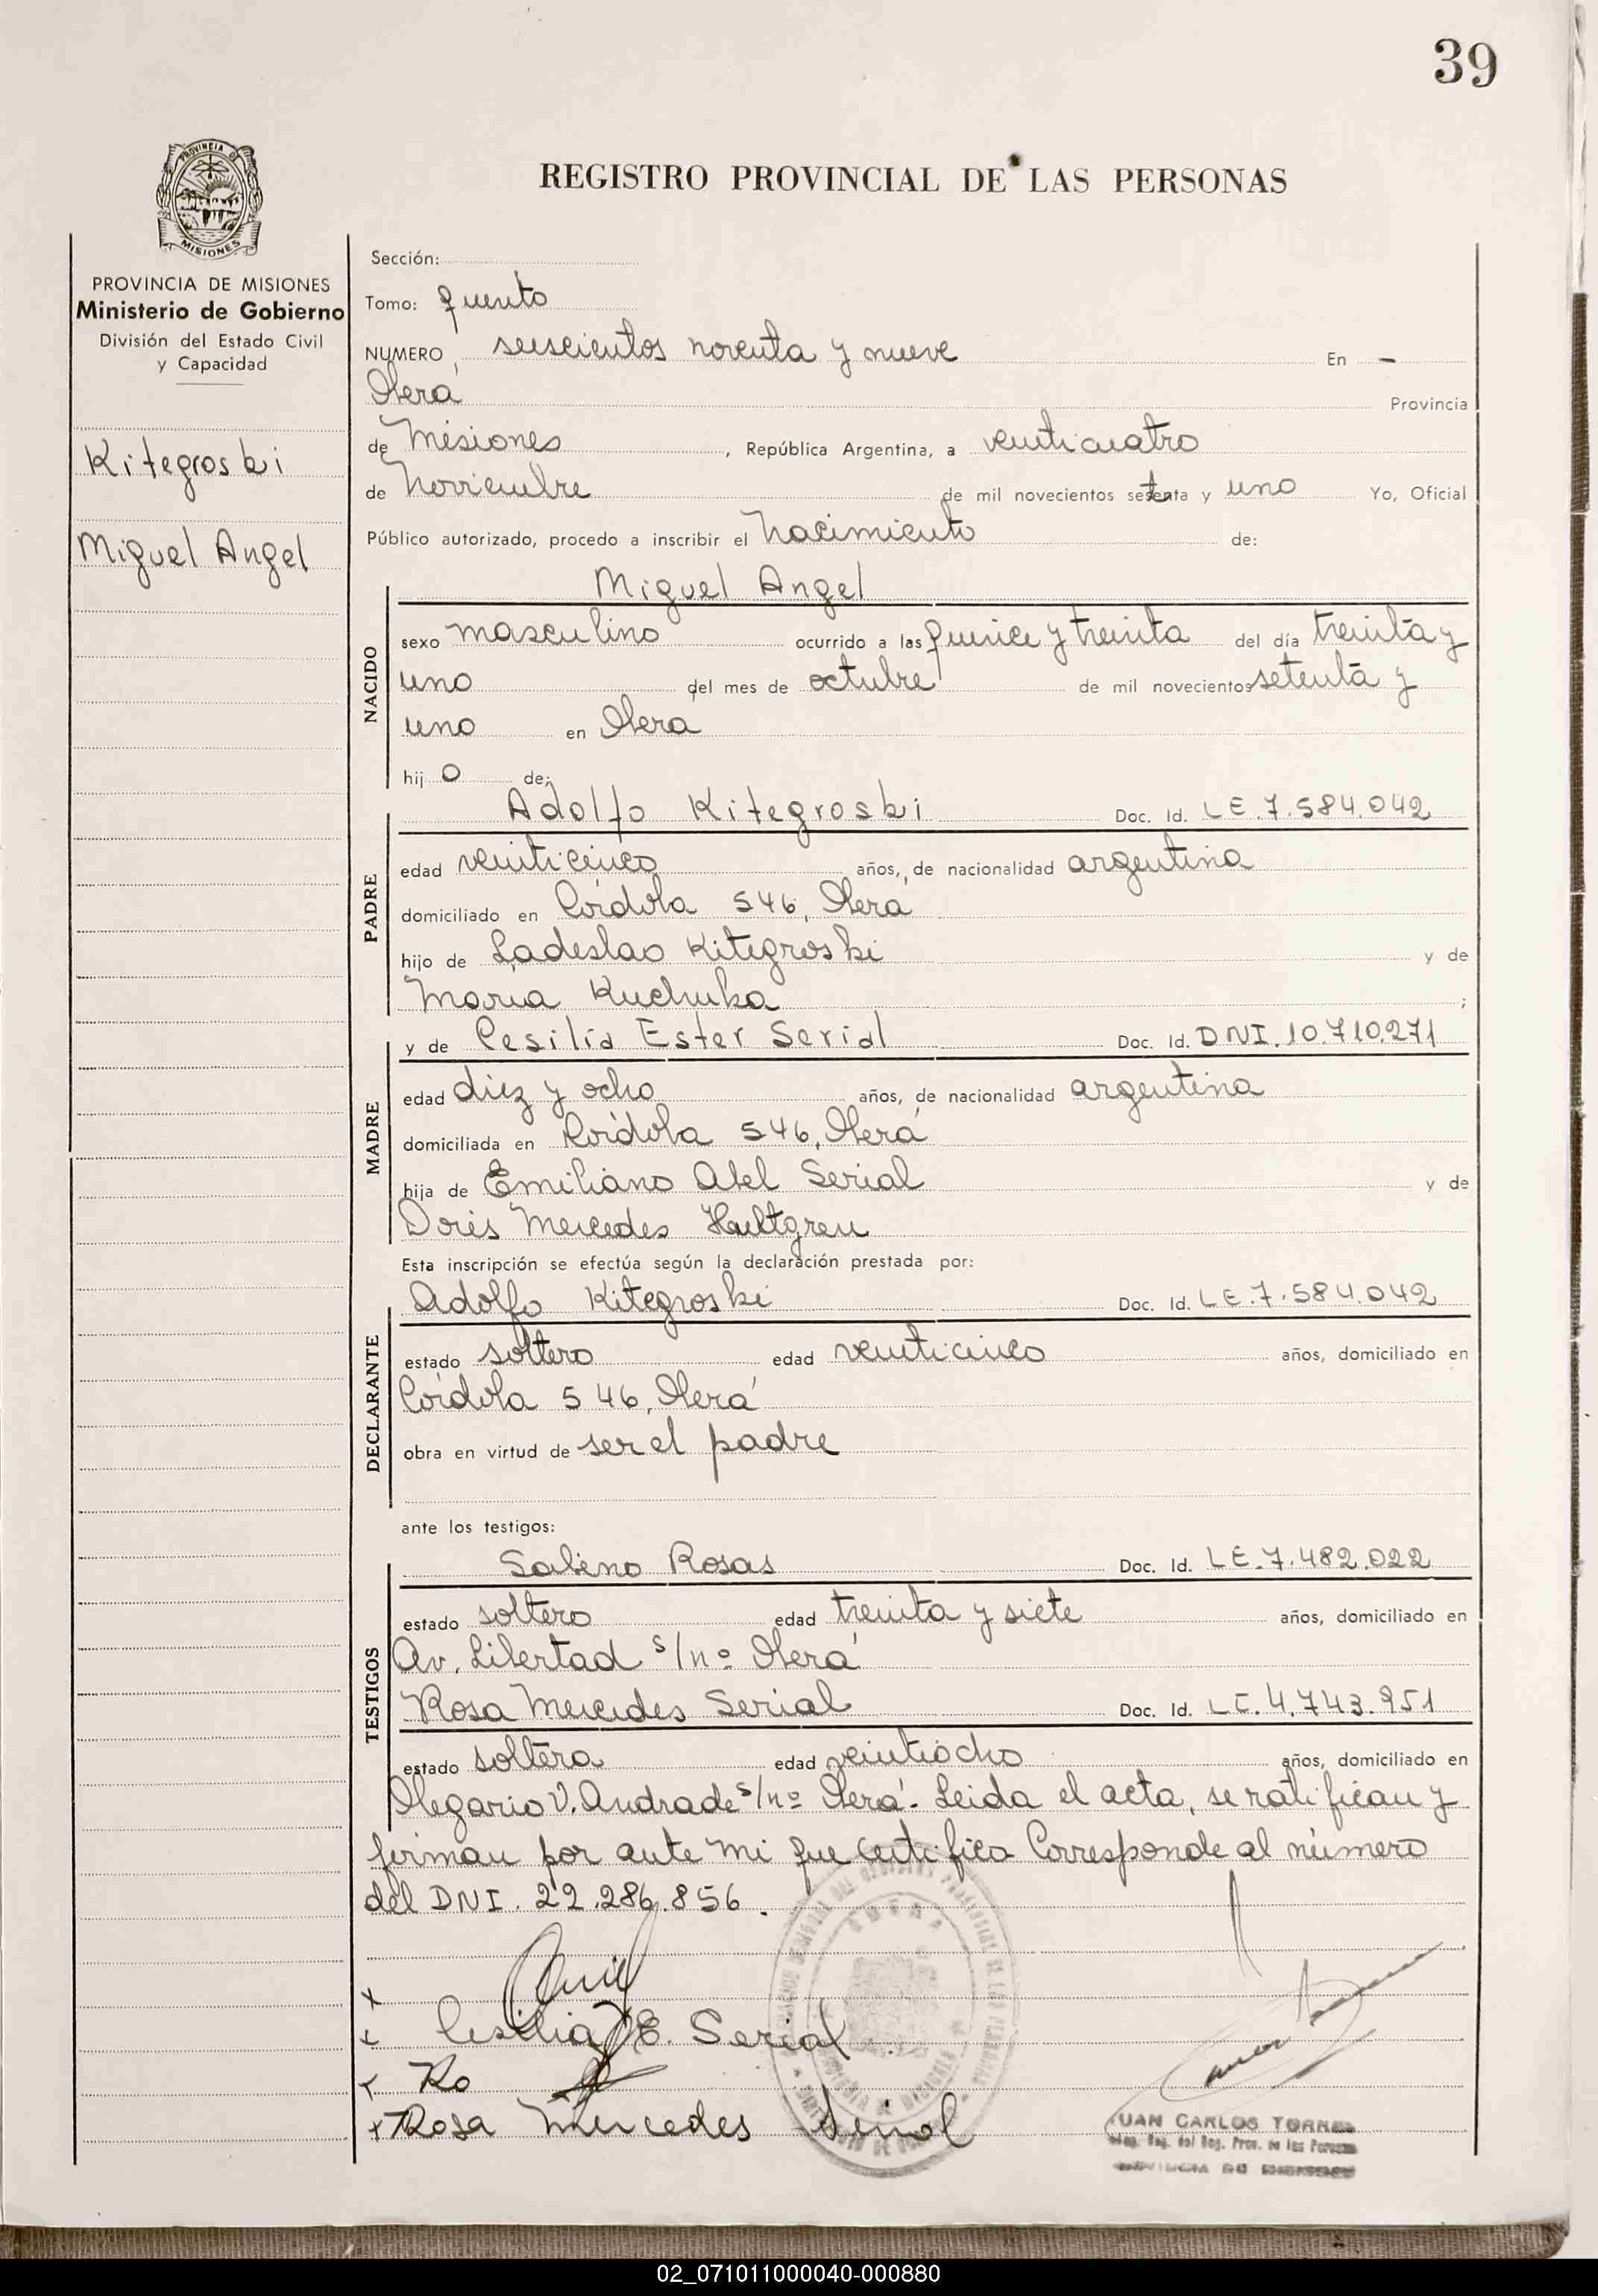 39
PROVINCIA DE
MISIONES
REGISTRO PROVINCIAL DE LAS PERSONAS
PROVINCIA DE MISIONES
Ministerio de Gobierno
División del Estado Civil
y Capacidad
Kitegroski
Miguel Angel
Sección:
Tomo: quinto
NUMERO seiscientos noventa y nueve En —
Oberá Provincia
de Misiones, República Argentina, a veinticuatro
de Noviembre de mil novecientos setenta y uno Yo, Oficial
Público autorizado, procedo a inscribir el Nacimiento de:
NACIDO
Miguel Angel
sexo masculino ocurrido a las quince y treinta del día treinta y
uno del mes de octubre de mil novecientos setenta y
uno en Obera
hij o de:
PADRE
Adolfo Kitegroski Doc. Id. LE.7.584.042
edad veinticinco años, de nacionalidad argentina
domiciliado en Córdoba 546, Obera
hijo de Ladeslao Kitegroski y de
Maria Kuchuka ;
y de Cesilia Ester Serial Doc. Id. DNI.10.710.271
MADRE
edad diez y ocho años, de nacionalidad argentina
domiciliada en Córdoba 546, Oberá
hija de Emiliano Abel Serial y de
Doris Mercedes Hultgren
Esta inscripción se efectúa según la declaración prestada por:
DECLARANTE
Adolfo Kitegroski Doc. Id. LE.7.584.042
estado soltero edad veinticinco años, domiciliado en
Córdoba 546, Oberá
obra en virtud de ser el padre
ante los testigos:
TESTIGOS
Sabino Rosas Doc. Id. LE.7.482.022
estado soltero edad treinta y siete años, domiciliado en
Av. Libertad s/nº Oberá
Rosa Mercedes Serial Doc. Id. LC.4.743.951
estado soltera edad veintiocho años, domiciliado en
Olegario V. Andrade s/nº Oberá. Leida el acta, se ratifican y
firman por ante mi que certifico Corresponde al número
del DNI. 22.286.856.
x
x Cesilia E. Serial
x Ro
x Rosa Mercedes Serial
JUAN CARLOS TORRES
02_071011000040-000880